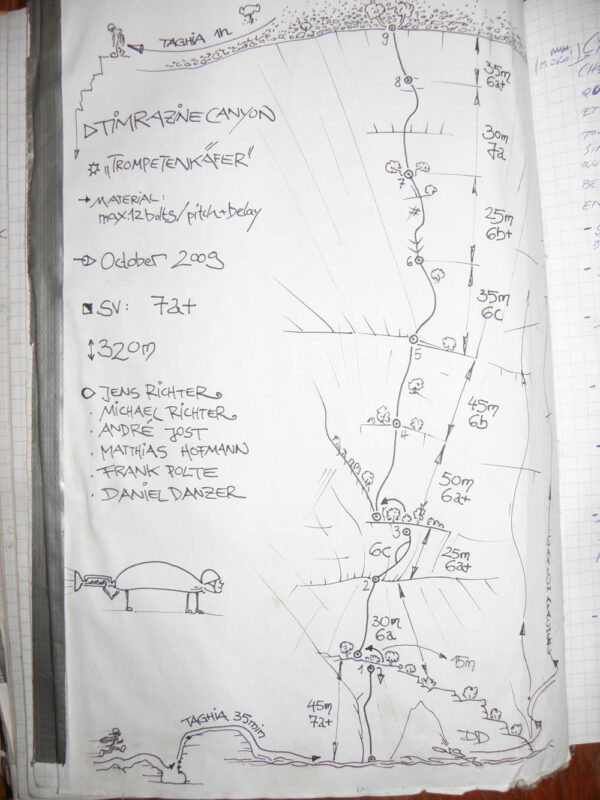 TAGHIA 1h
9
35m
6a+
8
▷TIMRAZINE CANYON
30m
7a
☼ „TROMPETENKÄFER"
7
→ MATERIAL:
max. 12 bolts/pitch+belay
25m
6b+
October 2009
6
SV: 7a+
35m
6c
↕320m
5
JENS RICHTER
· MICHAEL RICHTER
· ANDRÉ JOST
· MATTHIAS HOFMANN
· FRANK POLTE
· DANIEL DANZER
45m
6b
4
50m
6a+
3
6c
25m
6a+
2
30m
6a
15m
1
45m
7a+
TAGHIA 35min